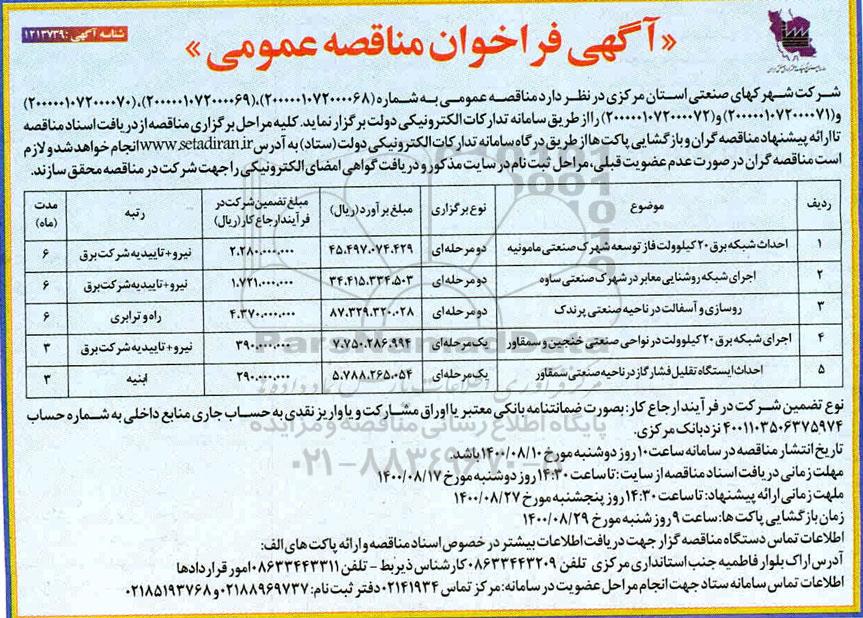 شناسه آگهی: ۱۲۱۳۷۳۹
«آگهی فراخوان مناقصه عمومی»
شرکت شهرکهای صنعتی استان مرکزی در نظر دارد مناقصه عمومی به شماره (۲۰۰۰۰۰۱۰۷۲۰۰۰۰۶۸)، (۲۰۰۰۰۰۱۰۷۲۰۰۰۰۶۹)، (۲۰۰۰۰۰۱۰۷۲۰۰۰۰۷۰)
و (۲۰۰۰۰۰۱۰۷۲۰۰۰۰۷۱) و (۲۰۰۰۰۰۱۰۷۲۰۰۰۰۷۲) را از طریق سامانه تدارکات الکترونیکی دولت برگزار نماید. کلیه مراحل برگزاری مناقصه از دریافت اسناد مناقصه
تا ارائه پیشنهاد مناقصه گران و بازگشایی پاکت‌ها از طریق درگاه سامانه تدارکات الکترونیکی دولت (ستاد) به آدرس www.setadiran.ir انجام خواهد شد و لازم
است مناقصه گران در صورت عدم عضویت قبلی، مراحل ثبت نام در سایت مذکور و دریافت گواهی امضای الکترونیکی را جهت شرکت در مناقصه محقق سازند.
ردیف موضوع نوع برگزاری مبلغ برآورد (ریال) مبلغ تضمین شرکت در فرآیند ارجاع کار (ریال) رتبه مدت (ماه)
۱ احداث شبکه برق ۲۰ کیلوولت فاز توسعه شهرک صنعتی مامونیه دو مرحله‌ای ۴۵.۴۹۷.۰۷۴.۴۲۹ ۲.۲۸۰.۰۰۰.۰۰۰ نیرو + تاییدیه شرکت برق ۶
۲ اجرای شبکه روشنایی معابر در شهرک صنعتی ساوه دو مرحله‌ای ۳۴.۴۱۵.۳۳۴.۵۰۳ ۱.۷۲۱.۰۰۰.۰۰۰ نیرو + تاییدیه شرکت برق ۶
۳ روسازی و آسفالت در ناحیه صنعتی پرندک دو مرحله‌ای ۸۷.۳۲۹.۳۲۰.۰۲۸ ۴.۳۷۰.۰۰۰.۰۰۰ راه و ترابری ۶
۴ اجرای شبکه برق ۲۰ کیلوولت در نواحی صنعتی خنجین و سمقاور یک مرحله‌ای ۷.۷۵۰.۲۸۶.۹۹۴ ۳۹۰.۰۰۰.۰۰۰ نیرو + تاییدیه شرکت برق ۳
۵ احداث ایستگاه تقلیل فشار گاز در ناحیه صنعتی سمقاور یک مرحله‌ای ۵.۷۸۸.۲۶۵.۰۵۴ ۲۹۰.۰۰۰.۰۰۰ ابنیه ۳
ParsNamadData
پایگاه اطلاع رسانی مناقصه و مزایده
۰۲۱-۸۸۳۴۹۶۷۰-۵
نوع تضمین شرکت در فرآیند ارجاع کار: بصورت ضمانتنامه بانکی معتبر یا اوراق مشارکت و یا واریز نقدی به حساب جاری منابع داخلی به شماره حساب
۴۰۰۱۱۰۳۵۰۶۳۷۵۹۷۴ نزد بانک مرکزی.
تاریخ انتشار مناقصه در سامانه ساعت ۱۰ روز دوشنبه مورخ ۱۴۰۰/۰۸/۱۰ باشد.
مهلت زمانی دریافت اسناد مناقصه از سایت: تا ساعت ۱۴:۳۰ روز دوشنبه مورخ ۱۴۰۰/۰۸/۱۷
ملهت زمانی ارائه پیشنهاد: تا ساعت ۱۴:۳۰ روز پنجشنبه مورخ ۱۴۰۰/۰۸/۲۷
زمان بازگشایی پاکت ها: ساعت ۹ روز شنبه مورخ ۱۴۰۰/۰۸/۲۹
اطلاعات تماس دستگاه مناقصه گزار جهت دریافت اطلاعات بیشتر در خصوص اسناد مناقصه و ارائه پاکت های الف:
آدرس اراک بلوار فاطمیه جنب استانداری مرکزی تلفن ۰۸۶۳۳۴۴۳۲۰۹ کارشناس ذیربط - تلفن ۰۸۶۳۳۴۴۳۳۱۱ امور قراردادها
اطلاعات تماس سامانه ستاد جهت انجام مراحل عضویت در سامانه: مرکز تماس ۰۲۱۴۱۹۳۴ دفتر ثبت نام: ۰۲۱۸۸۹۶۹۷۳۷ و ۰۲۱۸۵۱۹۳۷۶۸